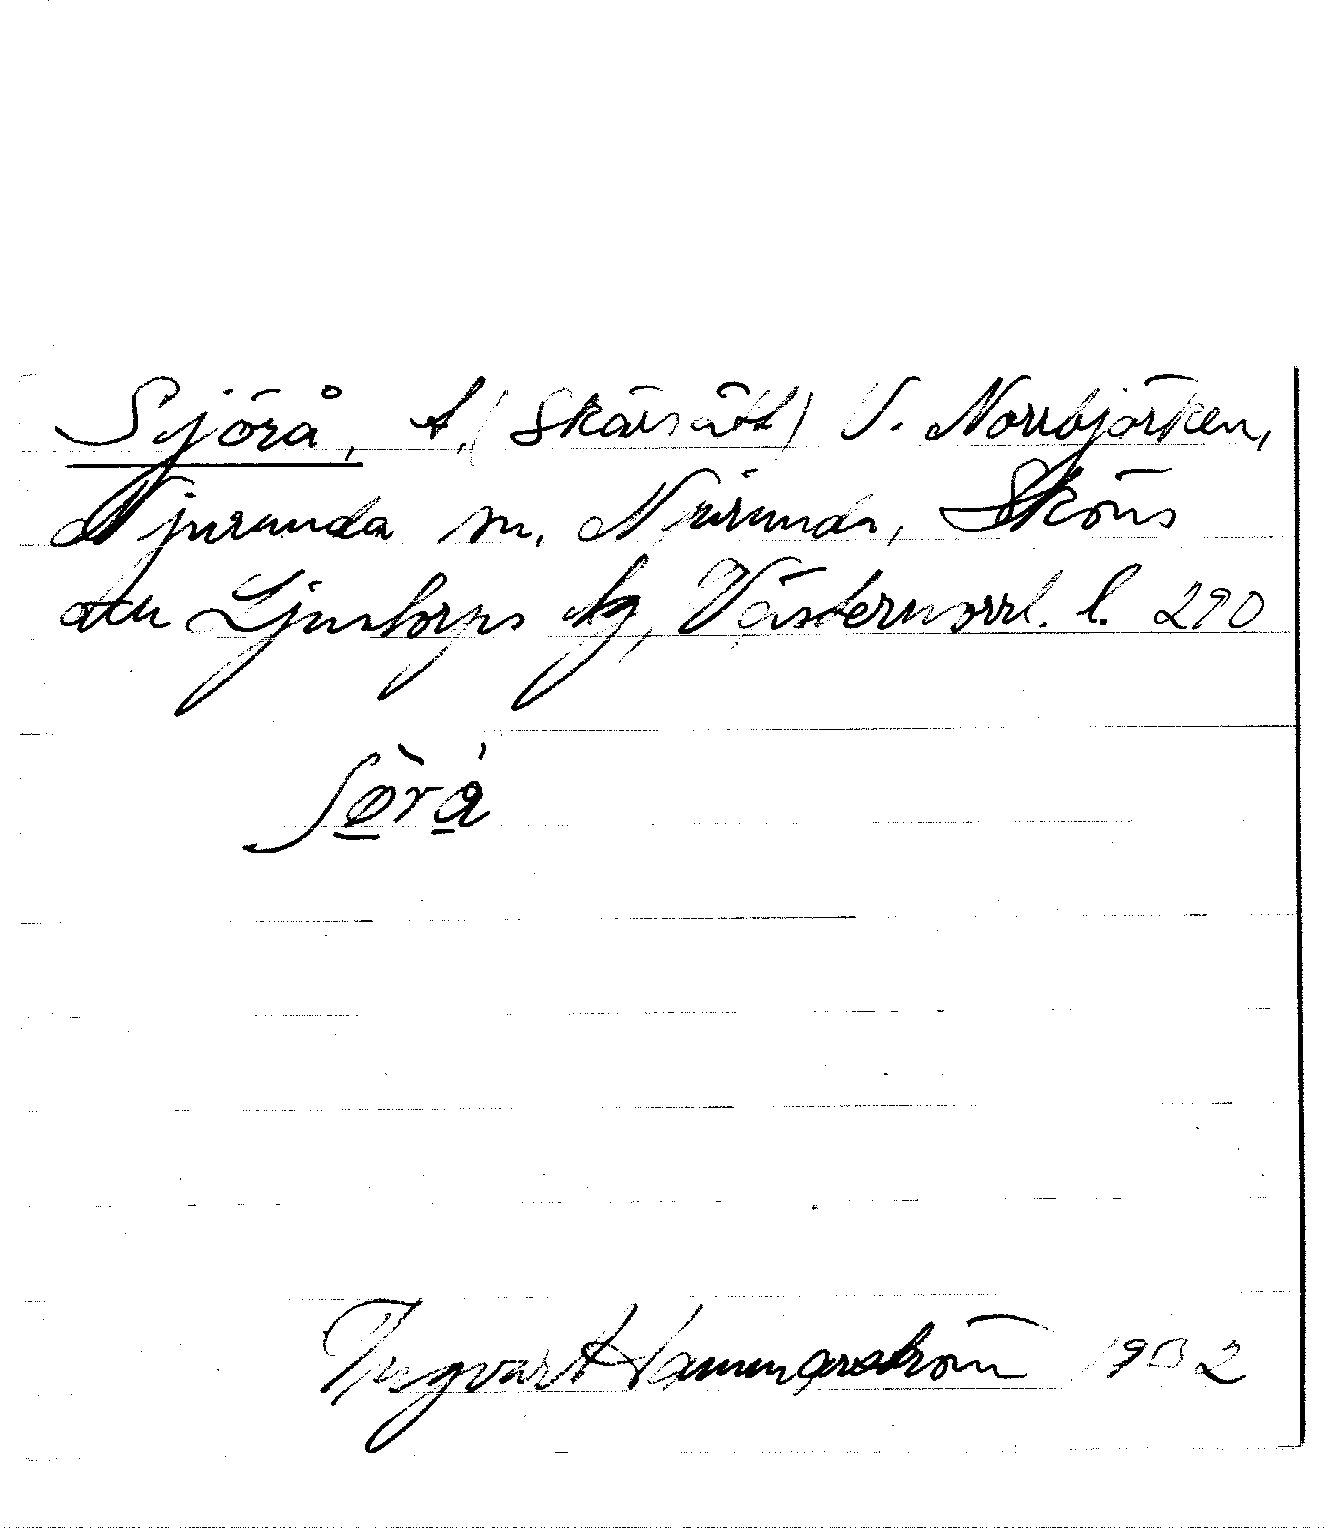 Sjörå, t. (Skärsätt) V. Norrbjörken,
Njurunda sn, Njurunda, Sköns
och Ljustorps tg, Västernorrl. l. 290
Sø̀rá
Ingvar Hammarström 1932